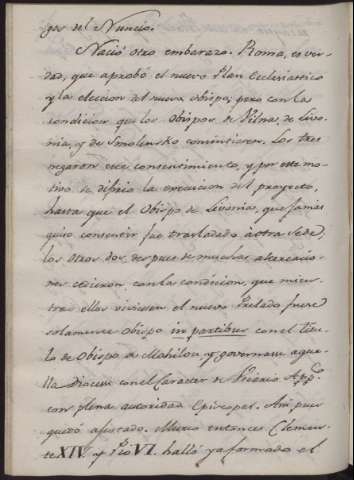 gos del Nuncio.
Nació otro embarazo. Roma, es ver-
dad, que aprobó el nuevo Plan Eclesiastico
y la eleccion del nuevo obispo; pero con la
condicion que los obispos de Vilna, de Livo-
nia, y de Smolensko consintiesen. Los tres
negaron este consentimiento, y por este mo-
tivo se difirió la execucion del proyecto,
hasta que el Obispo de Livonia, que jamas
quiso consentir fue trasladado à otra Sede,
los otros dos, despues de muchas altercacio-
nes cedieron con la condicion, que mien-
tras ellos viviesen el nuevo Prelado fuese
solamente obispo in partibus con el titu-
lo de Obispo de Mohilou, y governase aque-
lla Diocesi con el caracter de Vicario App.co
con plena autoridad Episcopal. Asi pues
quedó ajustado. Murió entonces Clemen-
te XIV. y Pio VI. halló ya formado el